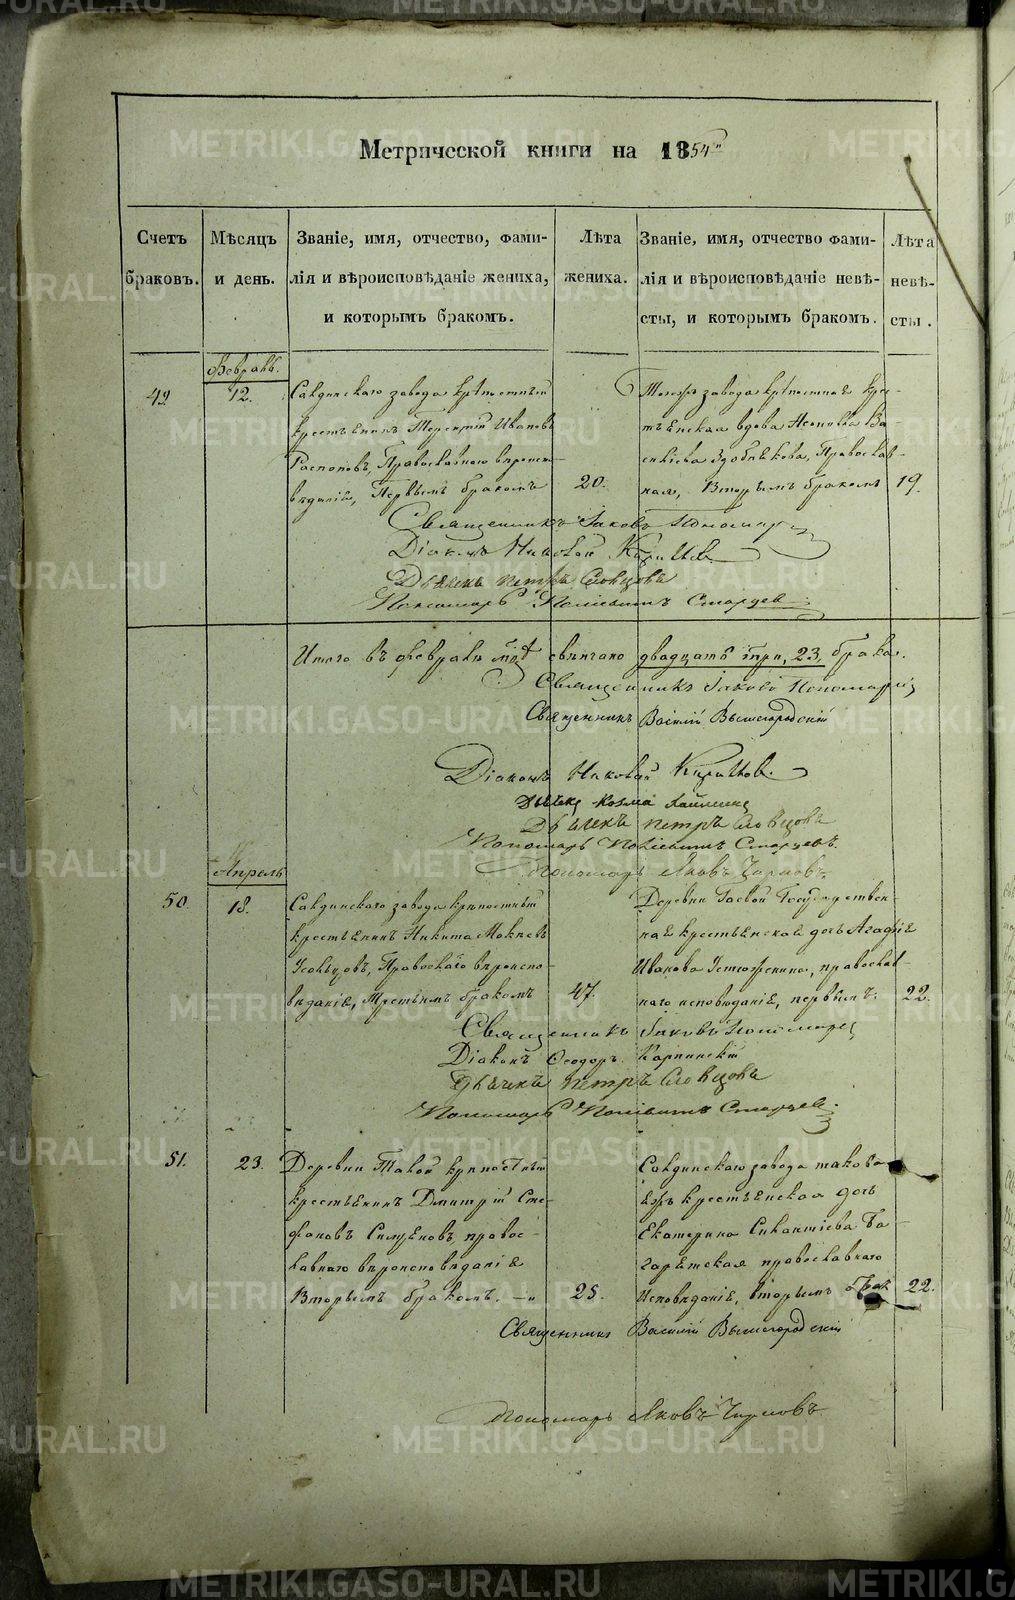 Метрической книги на 1854
Счетъ браковъ.
Мѣсяцъ и день.
Званіе, имя, отчество, фами-
лія и вѣроисповѣданіе жениха,
и которымъ бракомъ.
Лѣта жениха.
Званіе, имя, отчество фами-
лія и вѣроисповѣданіе невѣ-
сты, и которымъ бракомъ.
Лѣта невѣ-
сты.
Февраль.
49.
12.
завода крѣпостный
крестьянинъ Терентій Ивановъ
Распоповъ, Православнаго вѣроиспо-
вѣданія, Первымъ бракомъ
20.
Тогожъ завода крѣпостная крес-
тьянская вдова Ва-
сильева Православ-
ная, Вторымъ бракомъ
19.
Священникъ Іаковъ Пономаревъ
Діаконъ Николай
Дьячекъ Петръ Словцовъ
Пономарь Старцев
Итого въ февралѣ м-цѣ свѣнчано двадцать три, 23, брака.
Священникъ Іаковъ Пономаревъ
Священникъ Василій Вышегородскій
Діаконъ Николай
Дьячекъ Козма
Дьячекъ Петръ Словцовъ
Пономарь Старцевъ.
Пономарь Яковъ
Апрель
50.
18.
завода крѣпостный
крестьянинъ Никита
Усольцовъ, вѣроиспо-
вѣданія, Третьимъ бракомъ
47.
Деревни Государствен-
ная крестьянская дочь Агафія
Иванова православ-
наго исповѣданія, первымъ.
22.
Священникъ Іаковъ Пономаревъ
Діаконъ Ѳеодоръ Карпинскій
Дьячекъ Петръ Словцовъ
Пономарь Старцев.
51.
23.
Деревни крѣпостный
крестьянинъ Дмитрій Сте-
фановъ правос-
лавнаго вѣроисповѣданія
Вторымъ бракомъ.
25.
завода такова
яжъ крестьянская дочь
Екатерина Ба-
православнаго
Исповѣданія, вторымъ брак
22.
Священникъ Василій Вышегородскій
Пономарь Яковъ
METRIKI.GASO-URAL.RU